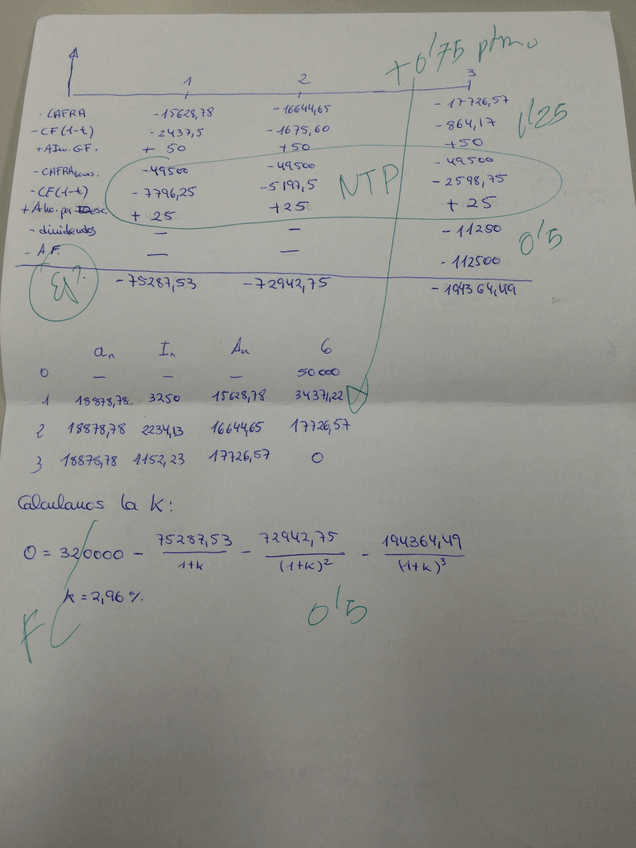 +0'75 ptmo
1 2 3
- CAFRA -15628,78 -16644,65 -17726,57
- CF(1-t) -2437,5 -1675,60 -864,17 1'25
+ Ahw. G.F. + 50 +50 +50
- CAFRA -49500 -49500 -49500
- CF(1-t) -7796,25 -5197,5 NTP -2598,75
+ 25 +25 + 25
- dividendos — — -11250 0'5
- A.F. — — -112500
-75287,53 -72942,75 -194364,49
an In An G
0 — — — 50000
1 18878,78 3250 15628,78 3437,22
2 18878,78 2234,13 16644,65 17726,57
3 18878,78 1152,23 17726,57 0
Calculamos la K:
0 = 320000 - 75287,53 / 1+k - 72942,75 / (1+k)² - 194364,49 / (1+k)³
k = 2,96 %. 0'5